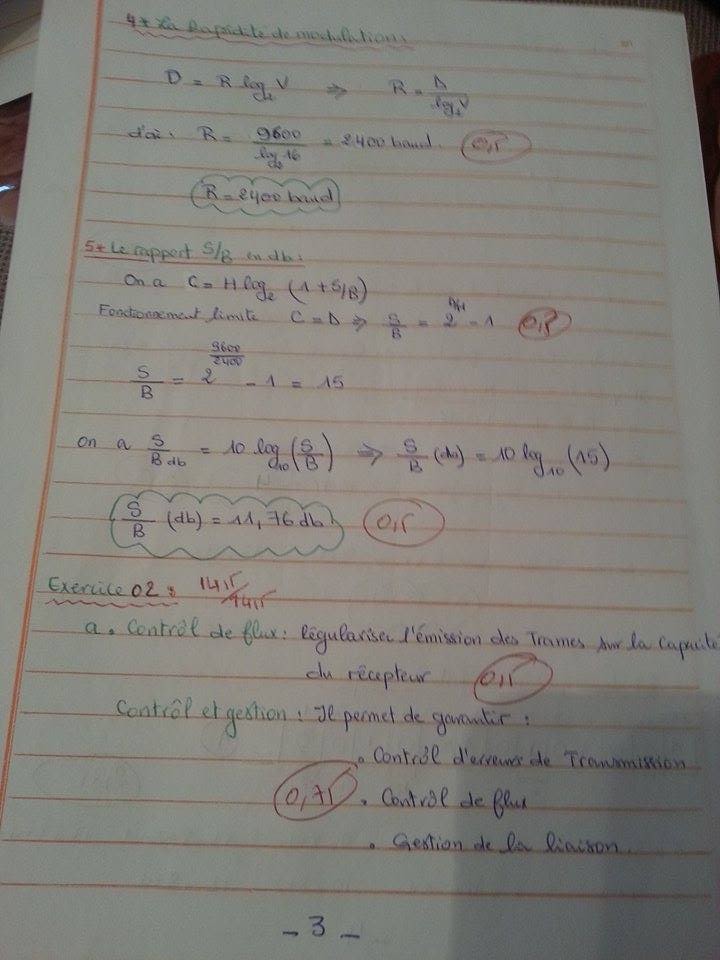 4* La Rapidité de modulation:
D = R log₂ V ⇒ R = D / log₂ V
d'où: R = 9600 / log₂ 16 = 2400 baud. 0,5
R = 2400 baud
5* Le rapport S/B en db:
On a C = H log₂ (1 + S/B)
Fonctionnement limite C = D ⇒ S/B = 2^(D/H) - 1 0,5
S/B = 2^(9600/2400) - 1 = 15
On a S/B db = 10 log₁₀ (S/B) ⇒ S/B (db) = 10 log₁₀ (15)
S/B (db) = 11,76 db 0,5
Exercice 02: 14,5/14,5
a. Contrôl de flux: Régulariser l'émission des Trames sur la capacité
du récepteur 0,5
Contrôl et gestion: Il permet de garantir:
. Contrôl d'erreurs de Transmission
0,75 . Contrôl de flux
. Gestion de la liaison.
- 3 -